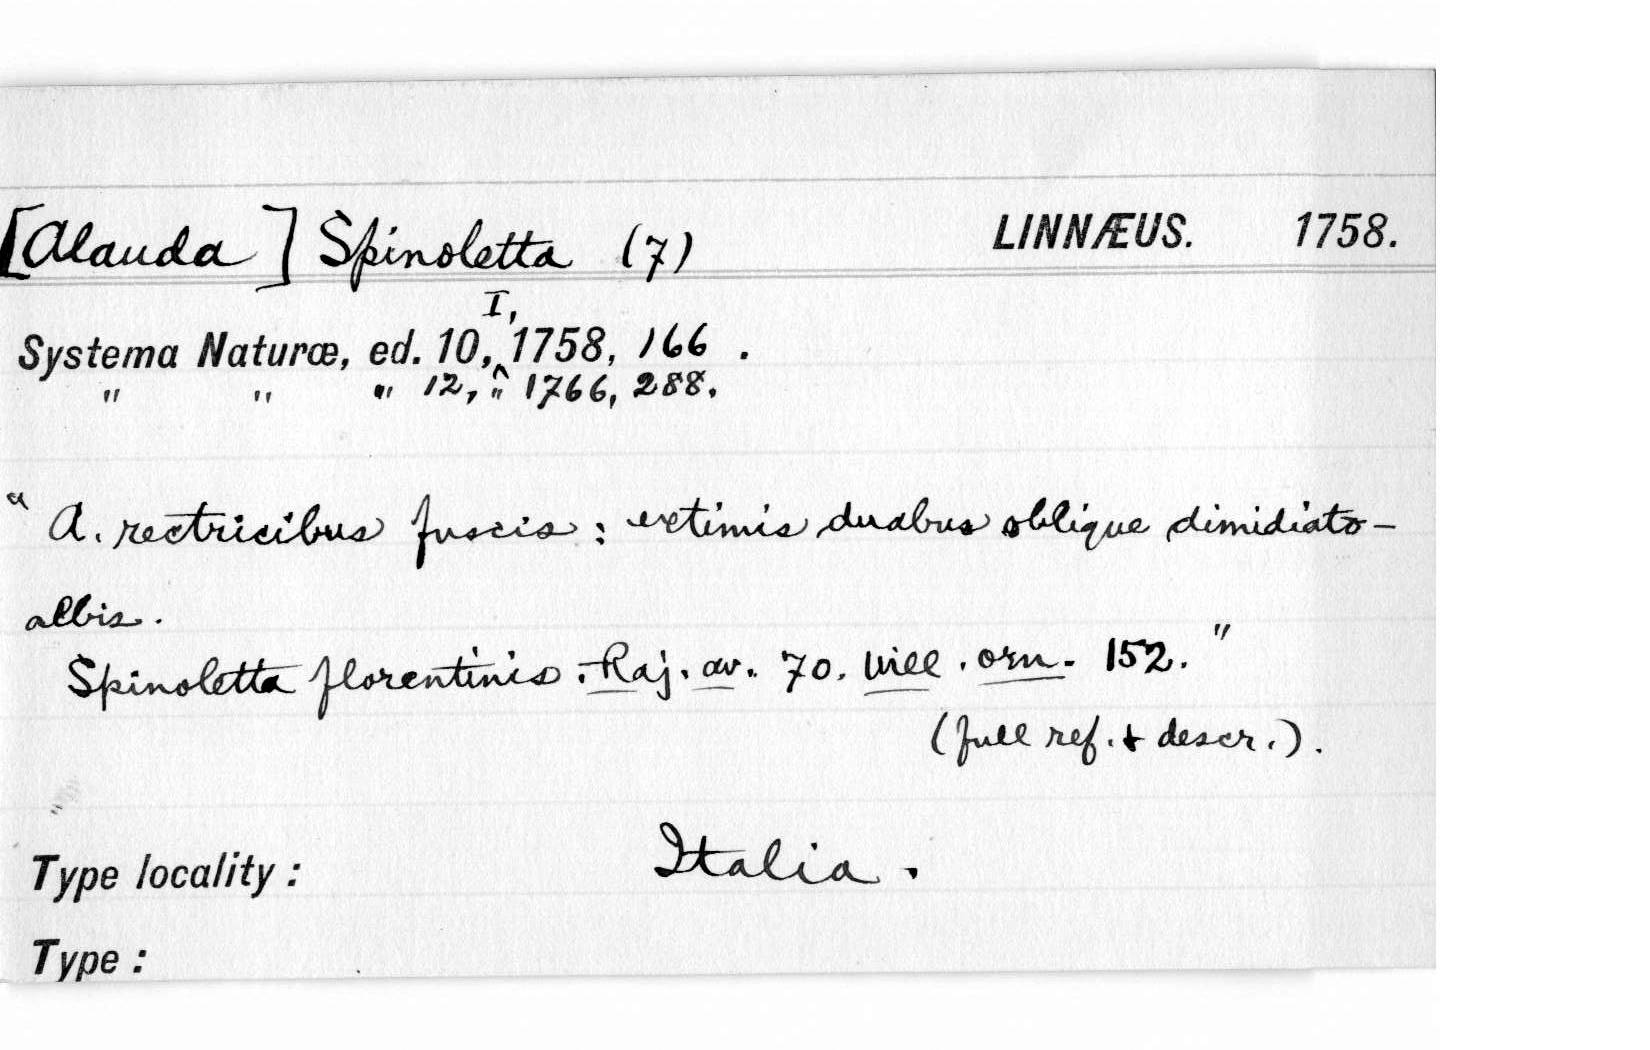 [Alauda] Spinoletta (7) LINNÆUS. 1758.
Systema Naturæ, ed. 10, I, 1758, 166 .
" " " 12, " 1766, 288.
" A. rectricibus fuscis : extimis duabus oblique dimidiato-
albis.
Spinoletta florentinis. Raj. av. 70. Will. orn. 152. "
(full ref. & descr.).
Type locality : Italia .
Type :